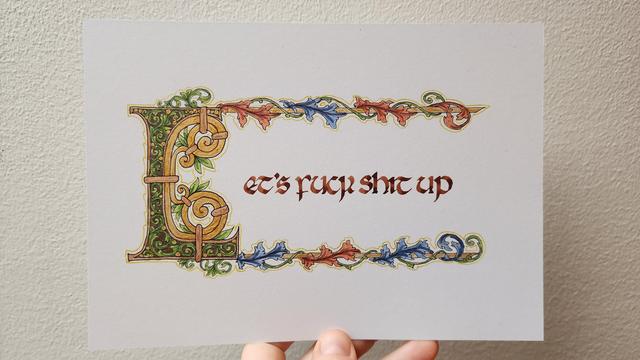 Let's fuck shit up